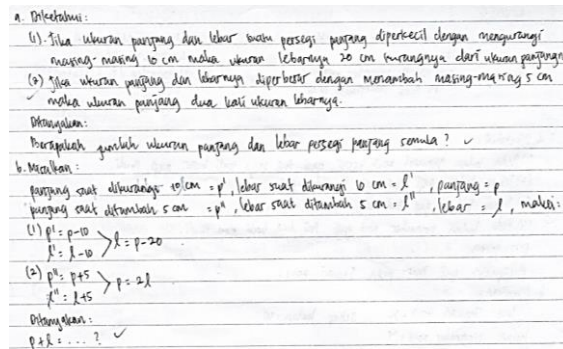 a. Diketahui:
(1). Jika ukuran panjang dan lebar suatu persegi panjang diperkecil dengan mengurangi
masing-masing 10 cm maka ukuran lebarnya 20 cm kurangnya dari ukuran panjangn
(2) Jika ukuran panjang dan lebarnya diperbesar dengan menambah masing-masing 5 cm
maka ukuran panjang dua kali ukuran lebarnya.
Ditanyakan:
Berapakah jumlah ukuran panjang dan lebar persegi panjang semula? ✓
b. Misalkan:
panjang saat dikurangi 10 cm = p', lebar saat dikurangi 10 cm = l', panjang = p
panjang saat ditambah 5 cm = p", lebar saat ditambah 5 cm = l", lebar = l, maka:
(1) p' = p-10
l' = l-10 > l = p-20
(2) p" = p+5
l" = l+5 > p = 2l
Ditanyakan:
p+l = ...? ✓